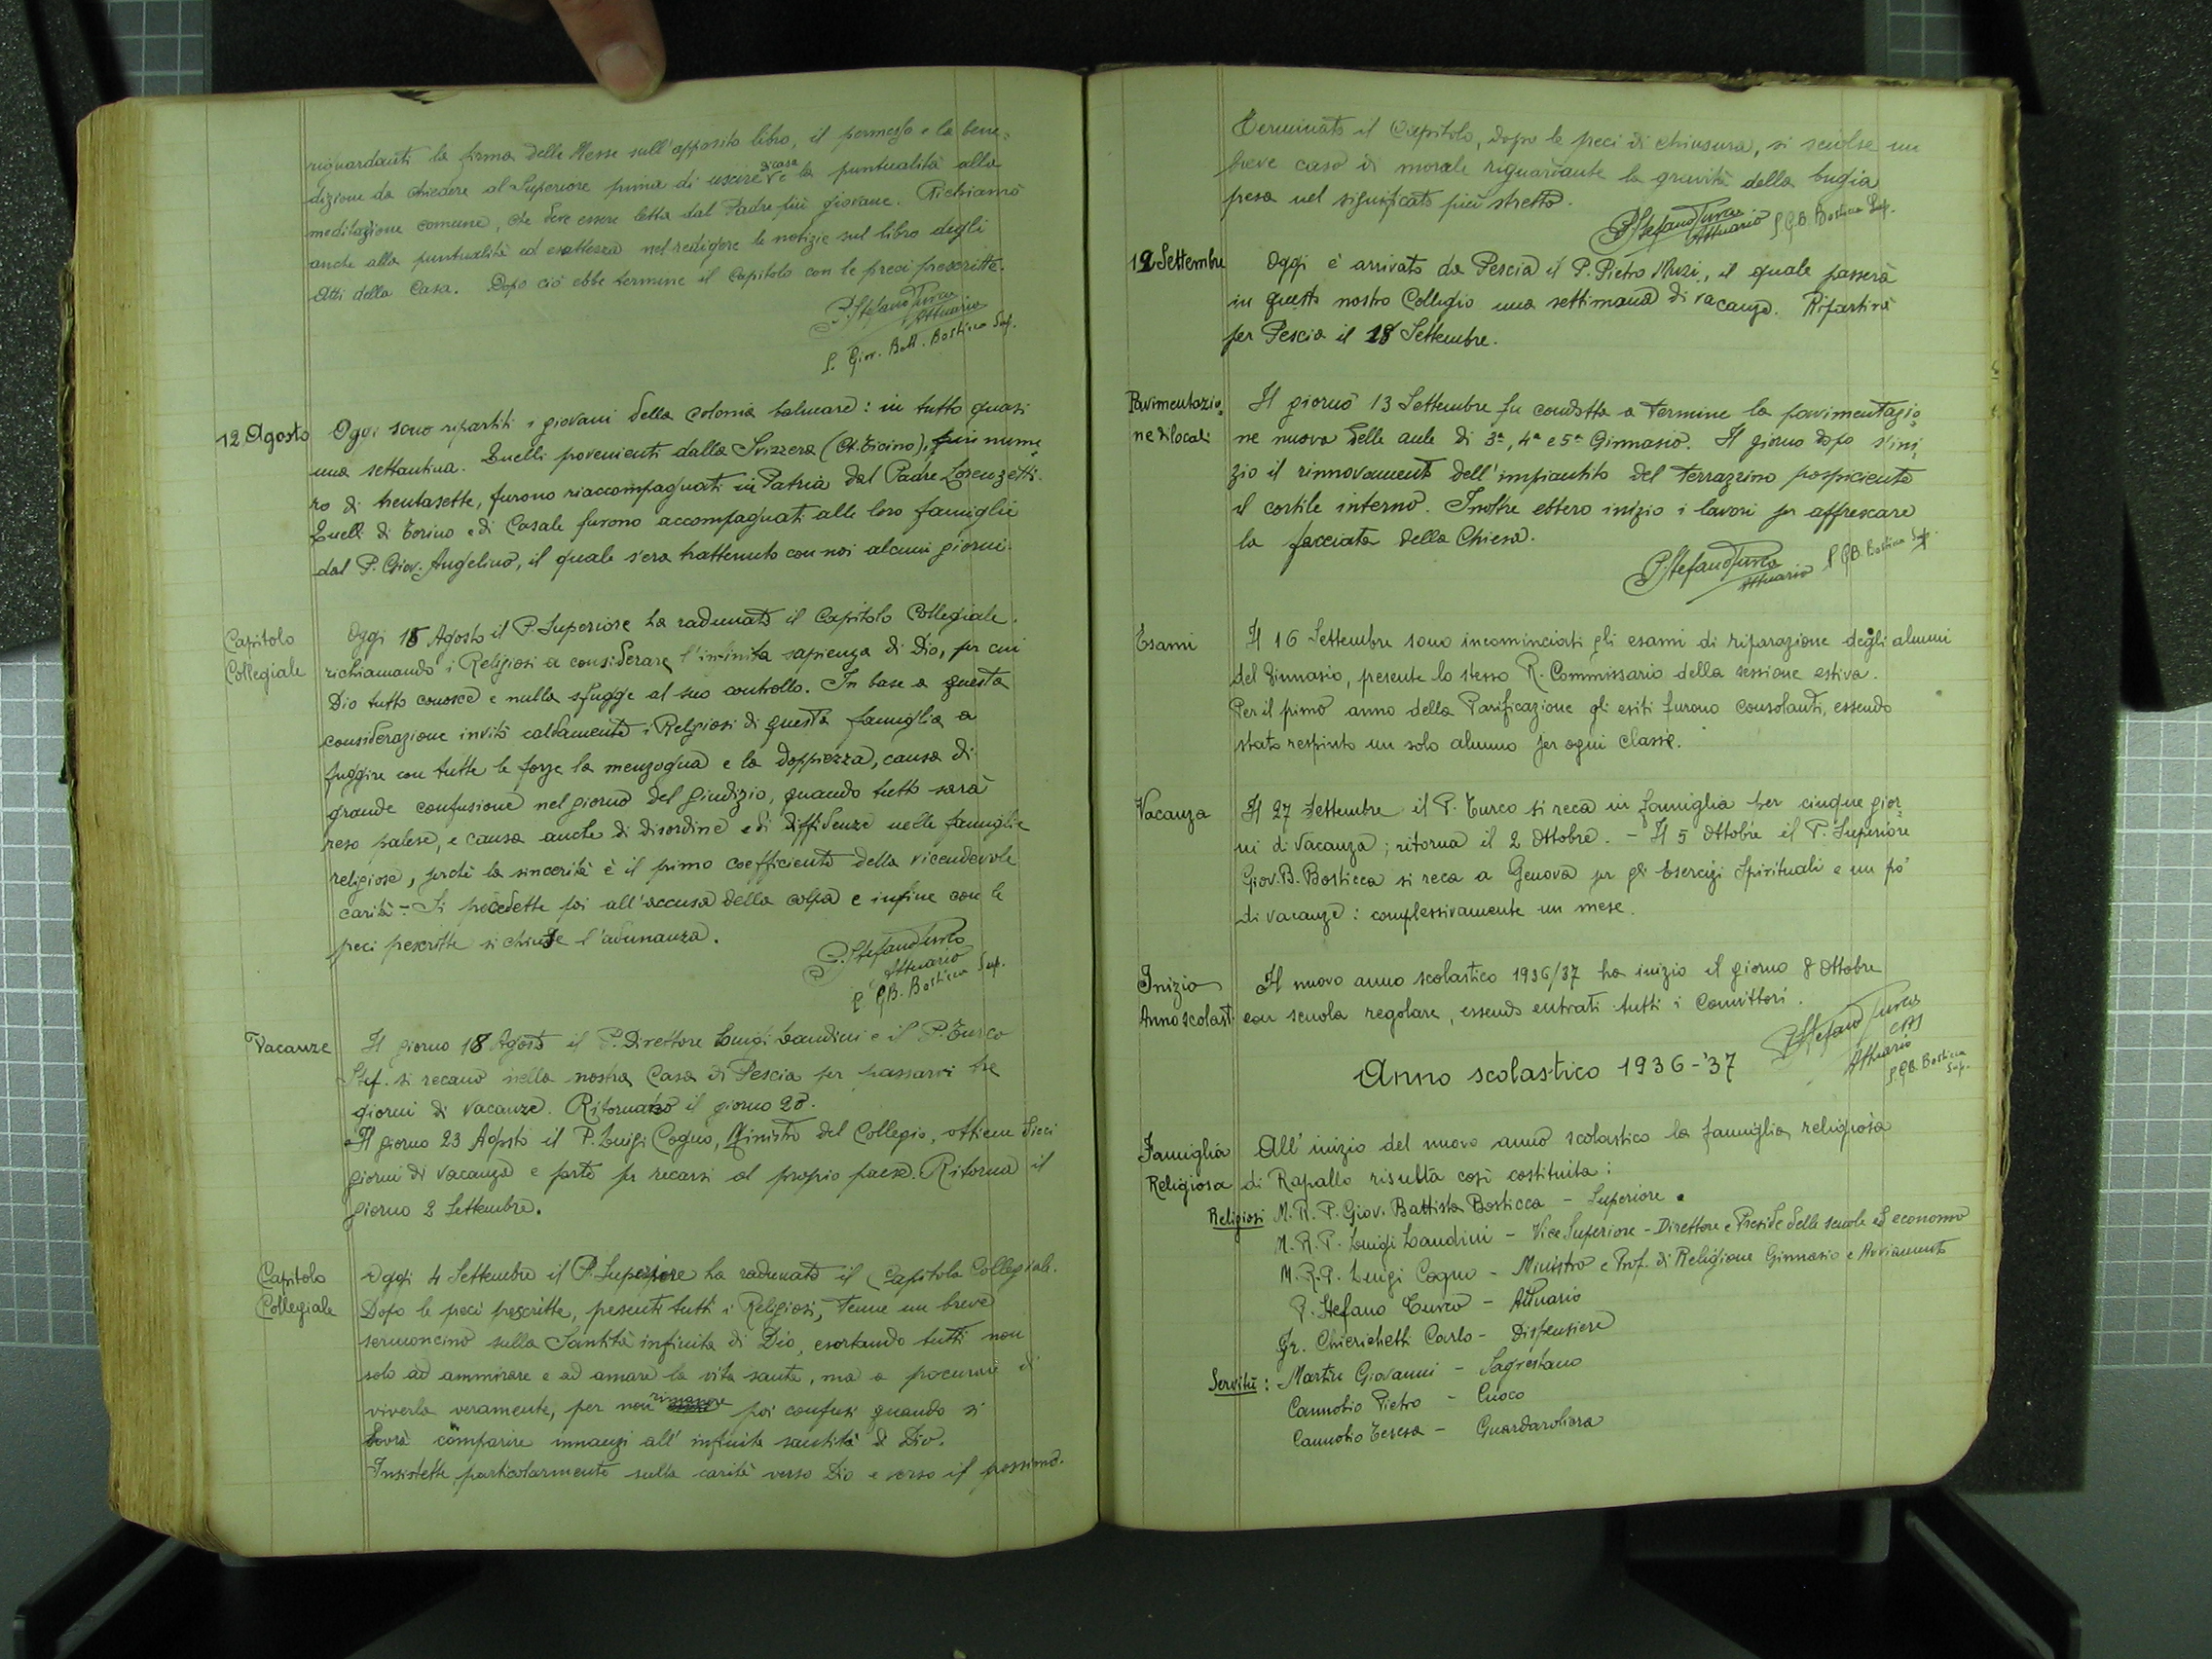 riguardanti la firma delle Messe sull'apposito libro, il permesso e la bene=
dizione da chiedere al Superiore prima di uscire di casa e la puntualità alla
meditazione comune, che deve essere letta dal Padre più giovane. Richiamò
anche alla puntualità ed esattezza nel redigere le notizie sul libro degli
Atti della Casa. Dopo ciò ebbe termine il Capitolo con le preci prescritte.
P. Stefano Turco
Attuario
P. Giov. Batt. Bosticca Sup.
12 Agosto Oggi sono ripartiti i giovani della colonia balneare: in tutto quasi
una settantina. Quelli provenienti dalla Svizzera (Ct. Ticino), in nume=
ro di trentasette, furono riaccompagnati in Patria dal Padre Lorenzetti.
Quelli di Torino e di Casale furono accompagnati alle loro famiglie
dal P. Giov. Angelino, il quale s'era trattenuto con noi alcuni giorni.
Capitolo Collegiale
Oggi 18 Agosto il P. Superiore ha radunato il Capitolo Collegiale.
richiamando i Religiosi a considerare l'infinita sapienza di Dio, per cui
Dio tutto conosce e nulla sfugge al suo controllo. In base a questa
considerazione invitò caldamente i Religiosi di questa famiglia a
fuggire con tutte le forze la menzogna e la doppiezza, causa di
grande confusione nel giorno del giudizio, quando tutto sarà
reso palese, e causa anche di disordine e di diffidenze nelle famiglie
religiose, perchè la sincerità è il primo coefficiente della vicendevole
carità - Si procedette poi all'accusa della colpa e infine con le
preci prescritte si chiuse l'adunanza.
P. Stefano Turco
Attuario
P. G.B. Bosticca Sup.
Vacanze Il giorno 18 Agosto il P. Direttore Luigi Landini e il P. Turco
Stef. si recano nella nostra Casa di Pescia per passarvi tre
giorni di vacanze. Ritornano il giorno 20.
Il giorno 23 Agosto il P. Luigi Cogno, Ministro del Collegio, ottiene dieci
giorni di vacanza e parte per recarsi al proprio paese. Ritorna il
giorno 2 Settembre.
Capitolo Collegiale
Oggi 4 Settembre il P. Superiore ha radunato il Capitolo Collegiale.
Dopo le preci prescritte, presenti tutti i Religiosi, tenne un breve
sermoncino sulla Santità infinita di Dio, esortando tutti non
solo ad ammirare e ad amare la vita santa, ma a procurare di
viverla veramente, per non rimanere poi confusi quando si
dovrà comparire innanzi all'infinita santità di Dio.
Insistette particolarmente sulla carità verso Dio e verso il prossimo.
Terminato il Capitolo, dopo le preci di chiusura, si sciolse un
breve caso di morale riguardante la gravità della bugia
presa nel significato più stretto.
P. Stefano Turco
Attuario P. G.B. Bosticca Sup.
12 Settembre Oggi è arrivato da Pescia il P. Pietro Muzi, il quale passerà
in questo nostro Collegio una settimana di vacanza. Ripartirà
per Pescia il 18 Settembre.
Pavimentazio=
ne di locali
Il giorno 13 Settembre fu condotta a termine la pavimentazio=
ne nuova delle aule di 3ª, 4ª e 5ª Ginnasio. Il giorno dopo s'ini=
zio il rinnovamento dell'impiantito del terrazzino prospiciente
il cortile interno. Inoltre ebbero inizio i lavori per affrescare
la facciata della Chiesa.
P. Stefano Turco
Attuario P. G.B. Bosticca Sup.
Esami Il 16 Settembre sono incominciati gli esami di riparazione degli alunni
del Ginnasio, presente lo stesso R. Commissario della sessione estiva.
Per il primo anno della Parificazione gli esiti furono consolanti, essendo
stato respinto un solo alunno per ogni classe.
Vacanza Il 27 Settembre il P. Turco si reca in famiglia per cinque gior=
ni di vacanza; ritorna il 2 Ottobre. - Il 5 Ottobre il P. Superiore
Giov. B. Bosticca si reca a Genova per gli Esercizi Spirituali e un pò
di vacanze: complessivamente un mese.
Inizio Anno scolast.
Il nuovo anno scolastico 1936/37 ha inizio il giorno 8 Ottobre
con scuola regolare, essendo entrati tutti i Convittori.
P. Stefano Turco
CRS
Attuario
P. G.B. Bosticca
Sup.
Anno scolastico 1936-'37
Famiglia Religiosa
All'inizio del nuovo anno scolastico la famiglia religiosa
di Rapallo risulta così costituita:
Religiosi M. R. P. Giov. Battista Bosticca - Superiore.
M. R. P. Luigi Landini - Vice Superiore - Direttore e Preside delle scuole ed economo
M. R. P. Luigi Cogno - Ministro e Prof. di Religione Ginnasio e Avviamento
P. Stefano Turco - Attuario
Fr. Chierichetti Carlo - Dispensiere
Servitù: Martire Giovanni - Sagrestano
Cannobio Pietro - Cuoco
Cannobio Teresa - Guardarobiera